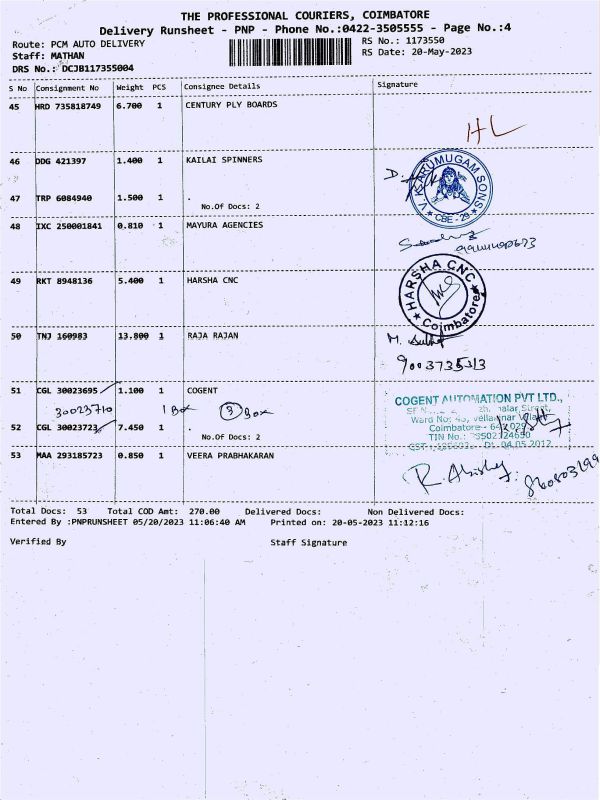 THE PROFESSIONAL COURIERS, COIMBATORE
Delivery Runsheet - PNP - Phone No.:0422-3505555 - Page No.:4
Route: PCM AUTO DELIVERY RS No.: 1173550
Staff: MATHAN RS Date: 20-May-2023
DRS No.: DCJB117355004
S No Consignment No Weight PCS Consignee Details Signature
45 HRD 735818749 6.700 1 CENTURY PLY BOARDS
HL
46 DDG 421397 1.400 1 KAILAI SPINNERS
V. KARUMUGAM SONS
★ CBE - 29 ★
47 TRP 6084940 1.500 1 .
No.Of Docs: 2
48 IXC 250001841 0.810 1 MAYURA AGENCIES
49 RKT 8948136 5.400 1 HARSHA CNC
★ HARSHA CNC ★
Coimbatore
50 TNJ 160983 13.800 1 RAJA RAJAN
M.
9003735313
51 CGL 30023695 1.100 1 COGENT
30023710 1 Box 3 Box
COGENT AUTOMATION PVT LTD.,
Ward No: 43,
Coimbatore - 641 029
TIN No.:
52 CGL 30023723 7.450 1 .
No.Of Docs: 2
Dt. 04.05.2012
53 MAA 293185723 0.850 1 VEERA PRABHAKARAN
Total Docs: 53 Total COD Amt: 270.00 Delivered Docs: Non Delivered Docs:
Entered By :PNPRUNSHEET 05/20/2023 11:06:40 AM Printed on: 20-05-2023 11:12:16
Verified By Staff Signature